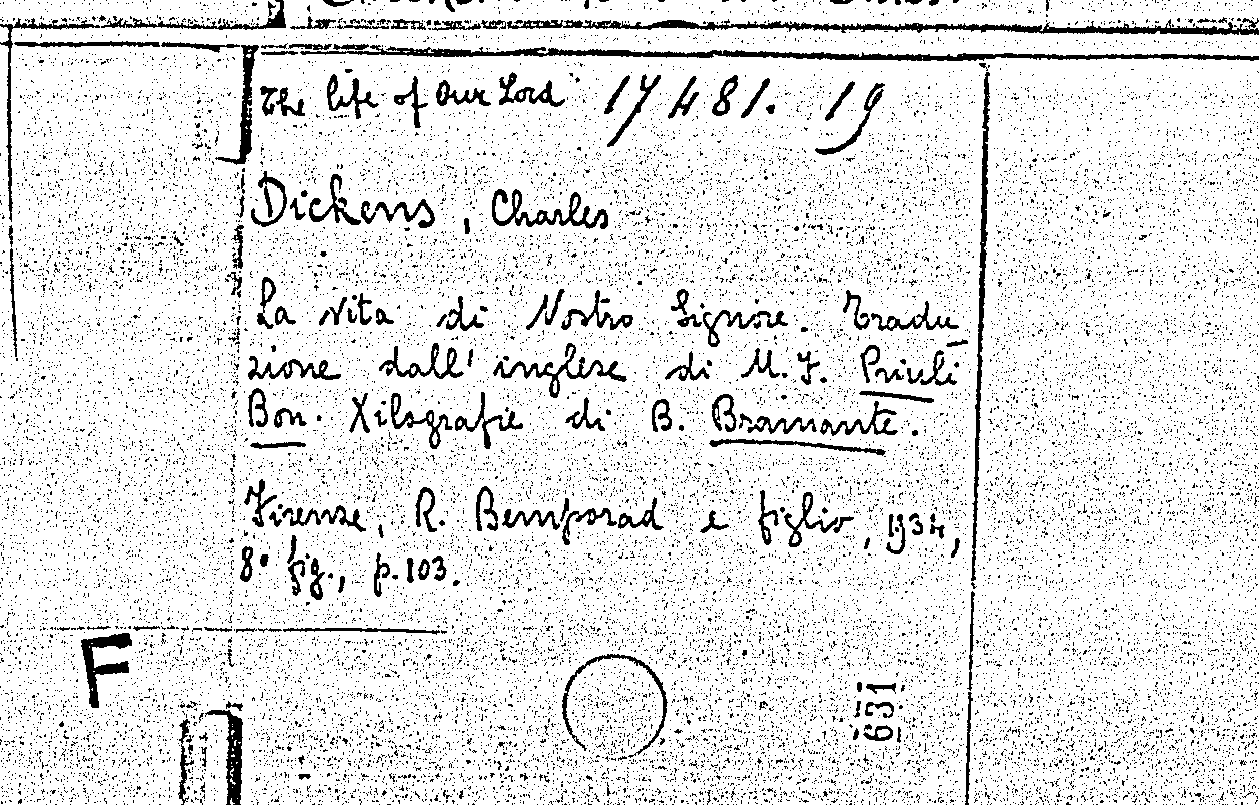 The life of Our Lord 17481. 19
Dickens, Charles
La vita di Nostro Signore. Tradu_
zione dall' inglese di M. J. Priuli
Bon. Xilografie di B. Bramante.
Firenze, R. Bemporad e figlio, 1934,
8° fig., p. 103.
F
631